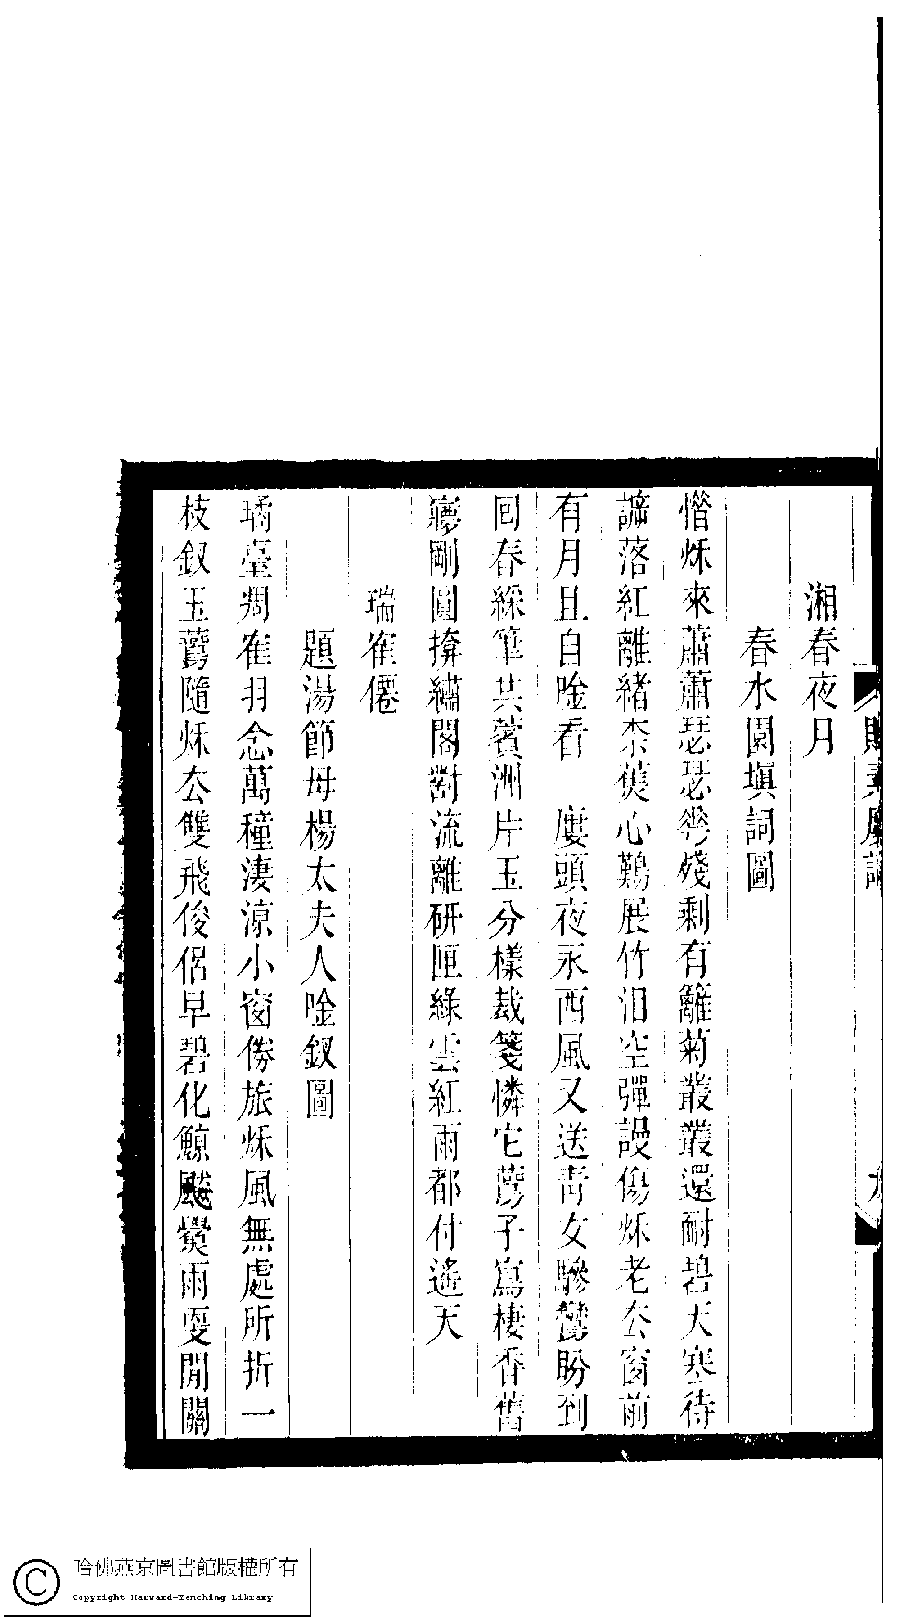 湘春夜月
春水園填詞圖
憯秌來蕭蕭瑟瑟聲殘剩有籬菊叢叢還耐碧天寒待
諦落紅離緒柰蕉心難展竹泪空彈謾傷秌老公窗前
有月且自唫看　廔頭夜永西風又送青女驂鸞盼到
回春綵筆共薲洲片玉分樣裁箋憐它蕩子寫棲香舊
寱剛圓揜繡閣對流離研匣綠雲紅雨都付遙天
瑞隺僊
題湯節母楊太夫人唫釵圖
璚臺凋隺羽念萬種淒涼小窗儔旅秌風無處所折一
枝釵玉鬢隨秌厺雙飛俊侶早碧化鯨飈爨雨耍閒關
哈佛燕京圖書館版權所有
Copyright Harvard-Yenching Library